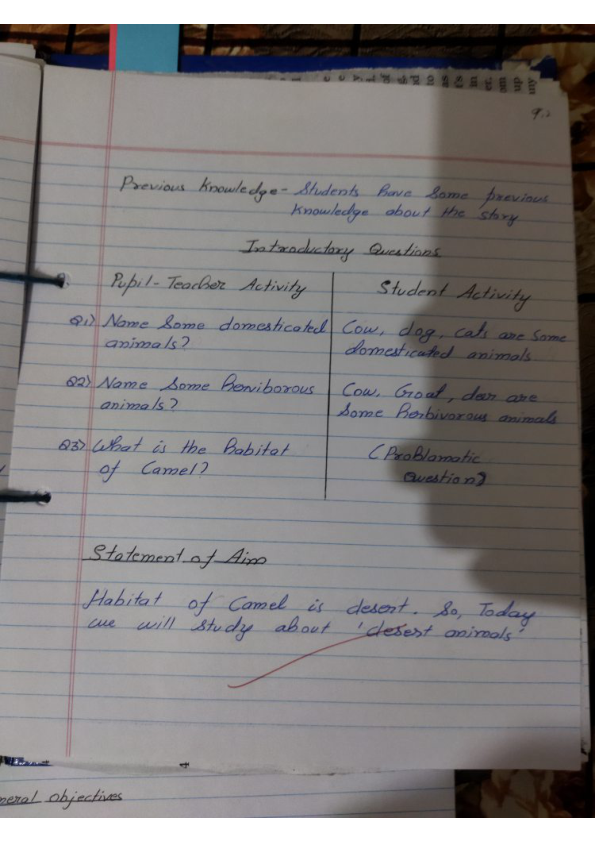 9.2
Previous Knowledge - Students have Some previous
Knowledge about the story
Introductory Questions
Pupil-Teacher Activity
Student Activity
Q1) Name Some domesticated
animals?
Cow, dog, cats are Some
domesticated animals
Q2) Name Some Herviborous
animals?
Cow, Goat, deer are
Some Herbivorous animals
Q3) What is the Habitat
of Camel?
(Problamatic
Question)
Statement of Aim
Habitat of Camel is desert. So, Today
we will study about 'desert animals'
neral Objectives